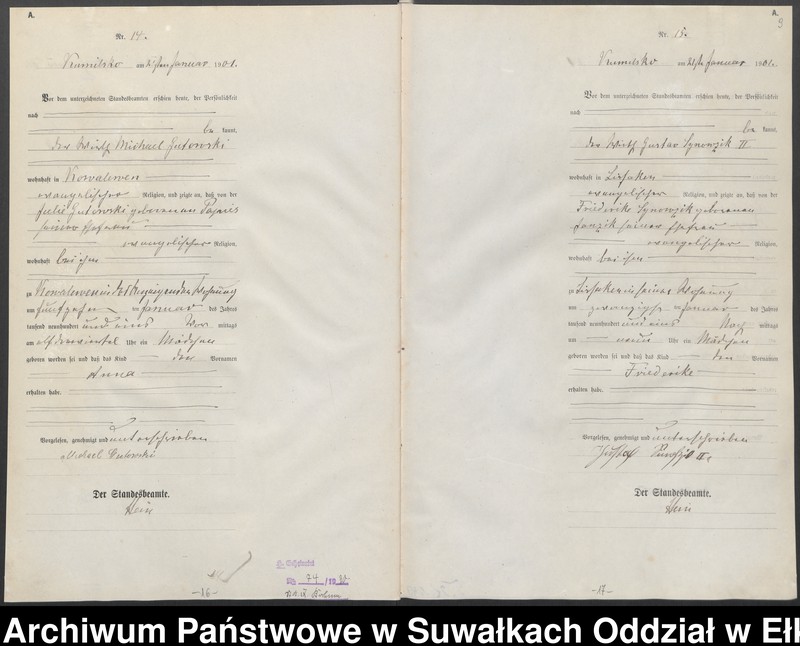 A.
Nr. 14.
Kumilsko am 21ten Januar 1901.
Vor dem unterzeichneten Standesbeamten erschien heute, der Persönlichkeit
nach
be kannt,
der Wirth Michael Gutowski
wohnhaft in Kowalewen
evangelischer Religion, und zeigte an, daß von der
Julie Gutowski geborenen
seiner Ehefrau
evangelischer Religion,
wohnhaft bei ihm
zu Kowalewen in des Anzeigenden Wohnung
am fünfzehn ten Januar des Jahres
tausend neunhundert und eins Vor mittags
um elf dreiviertel Uhr ein Mädchen
geboren worden sei und daß das Kind den Vornamen
Anna
erhalten habe.
Vorgelesen, genehmigt und unterschrieben
Michael Gutowski
Der Standesbeamte.
Hein
74 /19
-16-
A.
9
Nr. 15.
Kumilsko am 21ten Januar 1901.
Vor dem unterzeichneten Standesbeamten erschien heute, der Persönlichkeit
nach
be kannt,
der Wirth Gustav Synowzik II
wohnhaft in Lissaken
evangelischer Religion, und zeigte an, daß von der
Friederike Synowzik geborenen
seiner Ehefrau
evangelischer Religion,
wohnhaft bei ihm
zu Lissaken in seiner Wohnung
am zwanzigsten Januar des Jahres
tausend neunhundert und eins Nach mittags
um neun Uhr ein Mädchen
geboren worden sei und daß das Kind den Vornamen
Friederike
erhalten habe.
Vorgelesen, genehmigt und unterschrieben
Gustav II.
Der Standesbeamte.
Hein
-17-
Archiwum Państwowe w Suwałkach Oddział w Eł